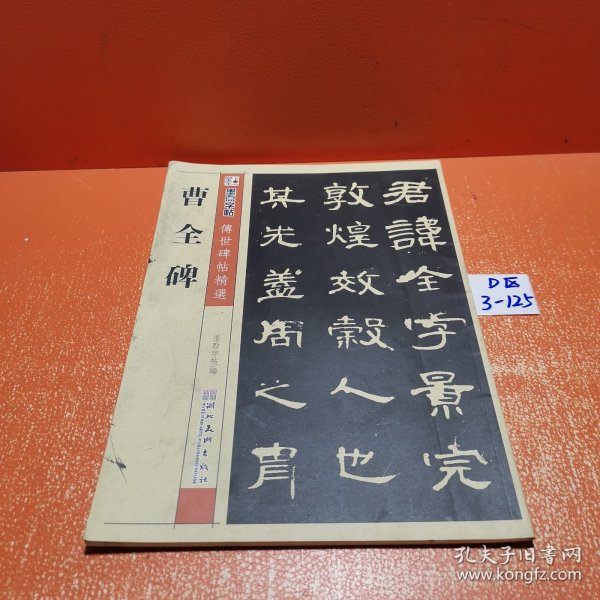 曹全碑
墨点字帖
傳世碑帖精選
墨點字帖編
湖北美術出版社
君諱全字景完
敦煌效穀人也
其先蓋周之胄
D区
3-125
孔夫子旧书网
www.kongfz.com